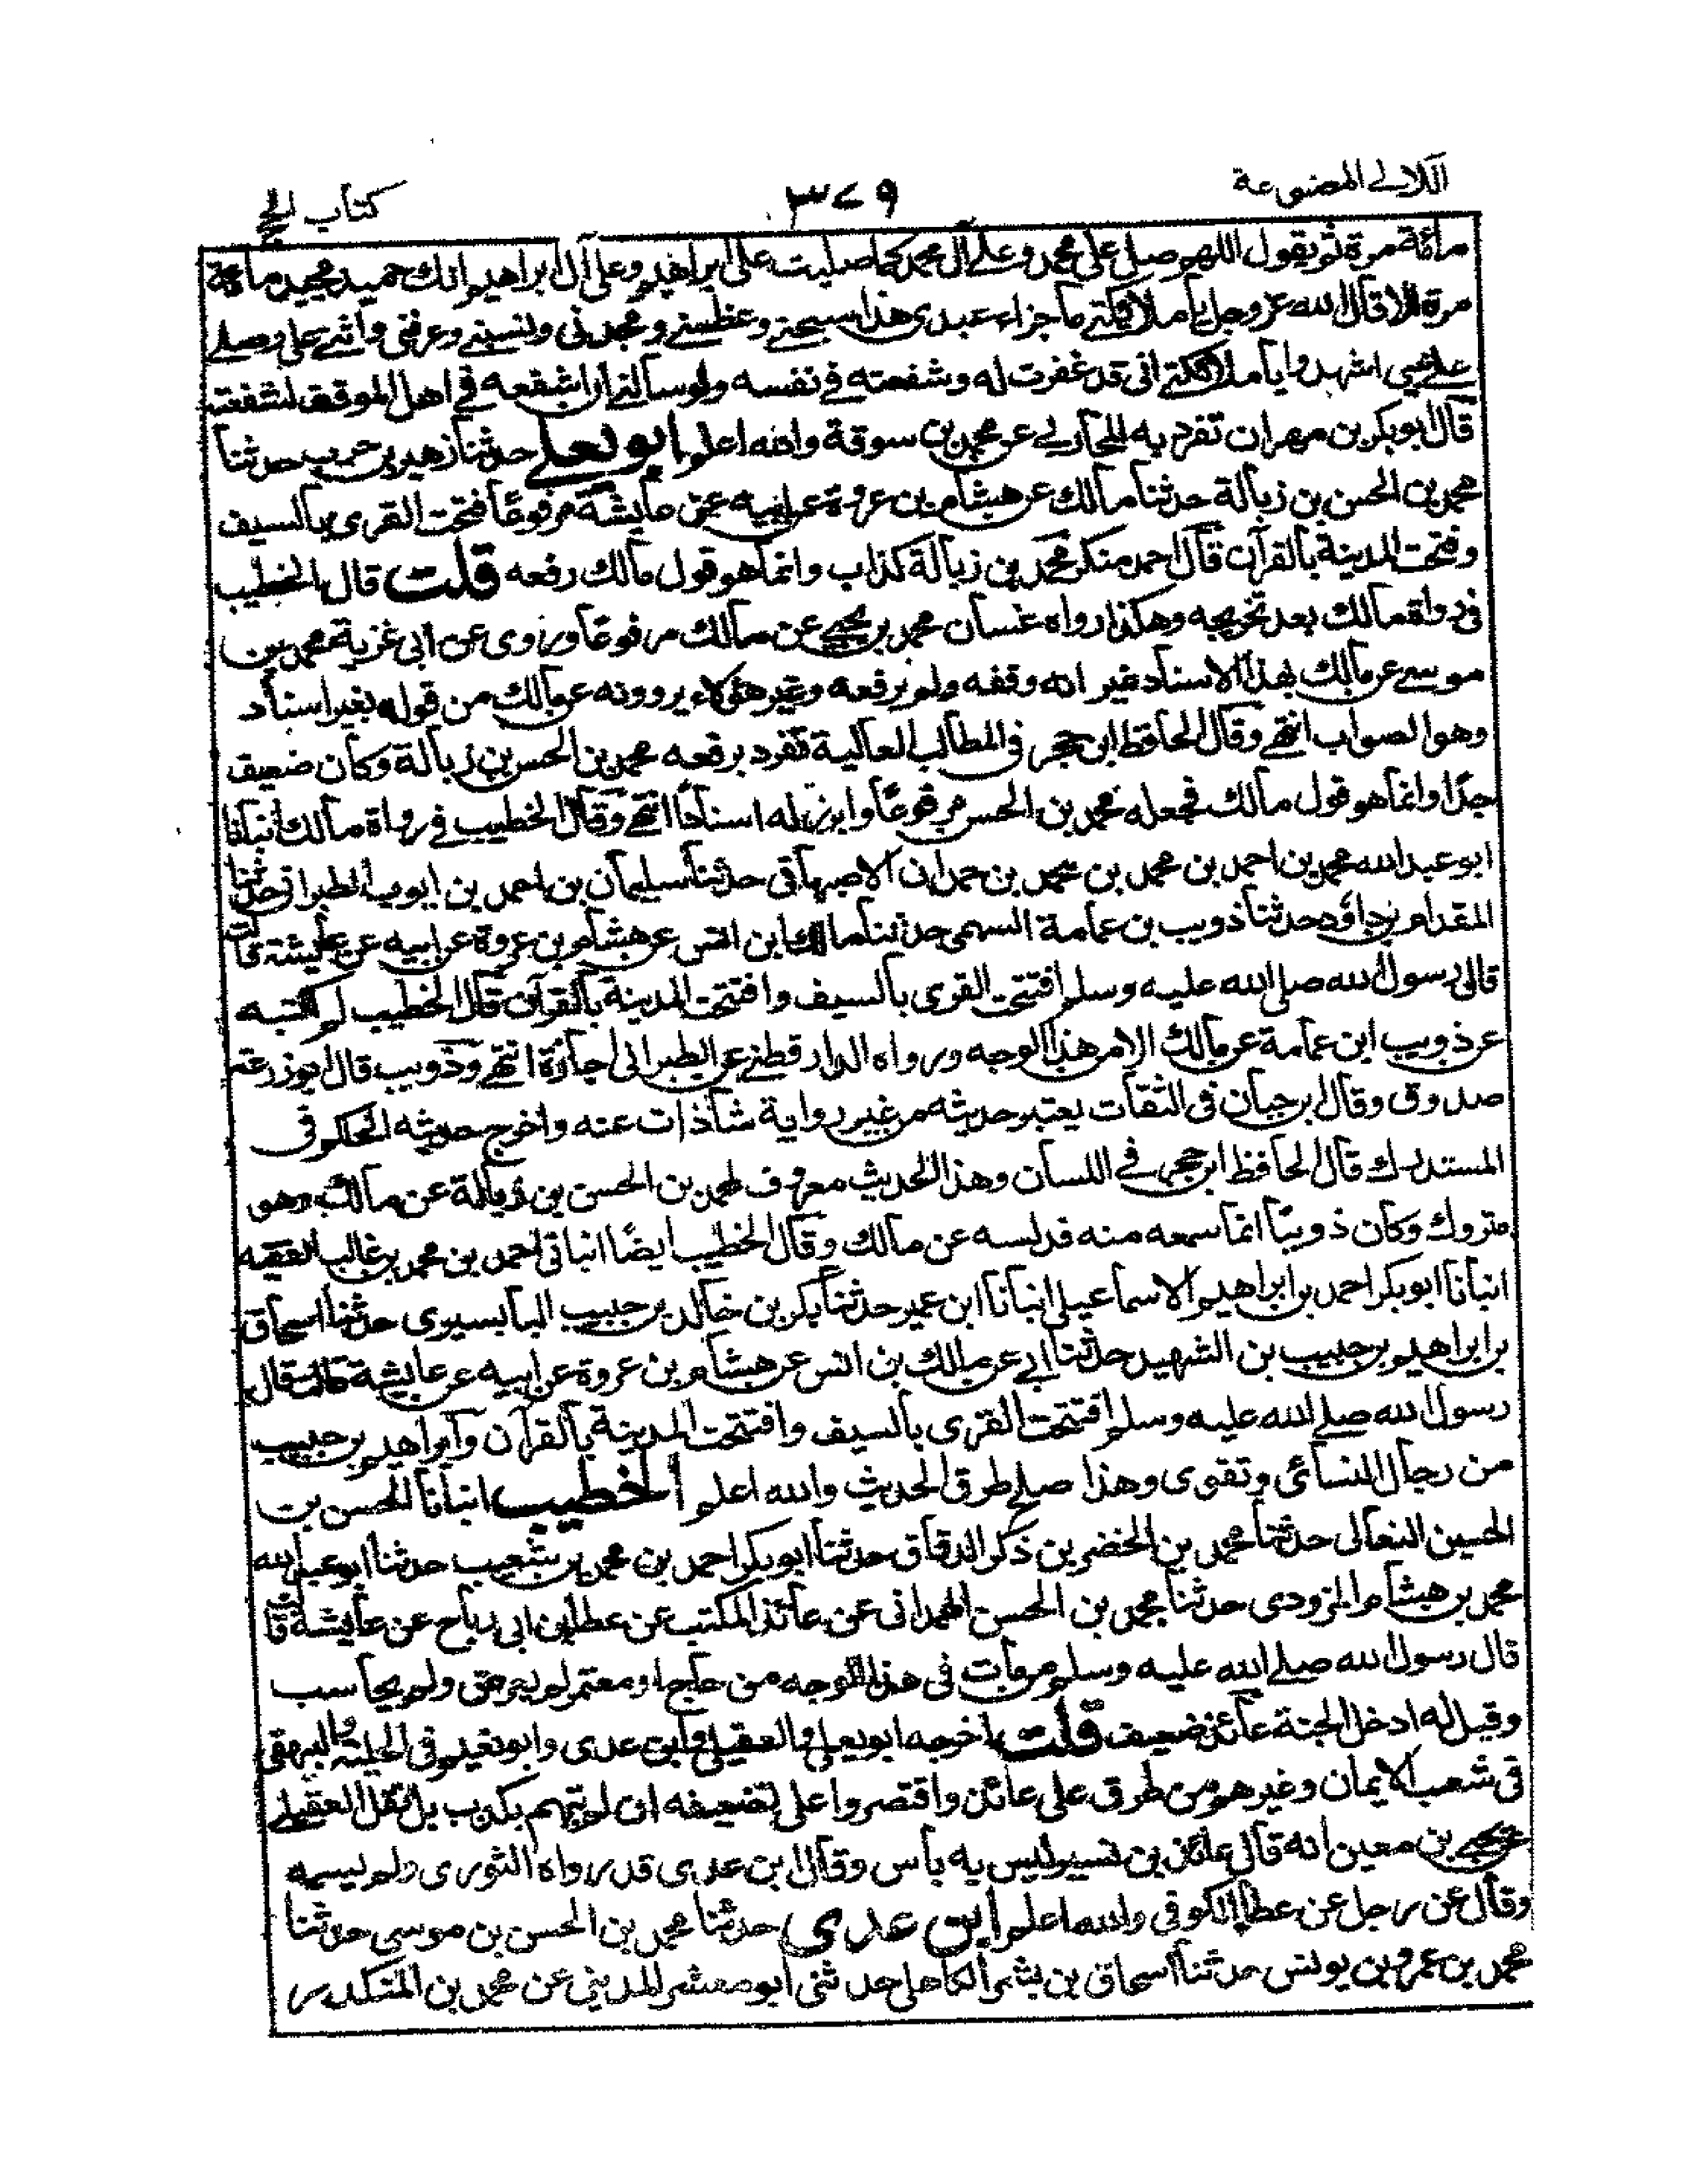 اللآلي المصنوعة
٣٧٩
كتاب الحج
مائة مرة ثم يقول اللهم صل على محمد وعلى آل محمد كما صليت على ابراهيم وعلى آل ابراهيم انك حميد مجيد مائة
مرة الا قال الله عز وجل يا ملائكتي ما جزاء عبدي هذا سبحني وعظمني ومجدني ونسبني وعرفني واثنى علي وصلى
على نبي اشهدوا يا ملائكتي انى قد غفرت له وشفعته في نفسه ولو سألني ان اشفعه في اهل الموقف لشفعته
قال ابو بكر بن مهران تفرد به المحاربي عن محمد بن سوقة والله اعلم ابو يعلى حدثنا زهير بن حرب حدثنا
محمد بن الحسن بن زبالة حدثنا مالك عن هشام بن عروة عن ابيه عن عايشة مرفوعاً فتحت القرى بالسيف
وفتحت المدينة بالقرآن قال احمد منكر محمد بن زبالة كذاب وانما هو قول مالك رفعه قلت قال الخطيب
في رواة مالك بعد تخريجه وهكذا رواه غسان محمد بن يحيى عن مالك مرفوعا وروى عن ابى غزية محمد بن
موسى عن مالك بهذا الاسناد غير انه وقفه ولم يرفعه وغير هؤلاء يروونه عن مالك من قوله بغير اسناد
وهو الصواب انتهى وقال الحافظ ابن حجر في المطالب العالية تفرد برفعه محمد بن الحسن بن زبالة وكان ضعيف
جدًا وانما هو قول مالك فجعله محمد بن الحسن مرفوعًا وابرز له اسنادًا انتهى وقال الخطيب في رواة مالك انبانا
ابو عبد الله محمد بن احمد بن محمد بن محمد بن حمدان الاصبهانى حدثنا سليمان بن احمد بن ايوب الطبرانى حدثنا
المقدام بن داود حدثنا ذويب بن عمامة السهمى حدثنا مالك ابن انس عن هشام بن عروة عن ابيه عن عايشة قالت
قال رسول الله صلى الله عليه وسلم افتتحت القرى بالسيف وافتتحت المدينة بالقرآن قال الخطيب لم اكتبه
عن ذويب ابن عمامة عن مالك الا من هذا الوجه ورواه الدارقطني عن الطبرانى اجازة انتهى وذويب قال ابو زرعة
صدوق وقال ابن حبان فى الثقات يعتبر حديثه من غير رواية شاذان عنه واخرج حديثه الحاكم فى
المستدرك قال الحافظ ابن حجر في اللسان وهذا الحديث معروف لمحمد بن الحسن بن زبالة عن مالك وهو
متروك وكان ذويبًا انما سمعه منه فدلسه عن مالك وقال الخطيب ايضًا انبانى احمد بن محمد بن غالب الفقيه
انبانا ابو بكر احمد بن ابراهيم الاسماعيلي انبانا ابن عمير حدثنا بكر بن خالد بن حبيب البابسيرى حدثنا اسحاق
بن ابراهيم بن حبيب بن الشهيد حدثنا ابي عن مالك بن انس عن هشام بن عروة عن ابيه عن عايشة قالت قال
رسول الله صلى الله عليه وسلم افتتحت القرى بالسيف وافتتحت المدينة بالقرآن وابراهيم بن حبيب
من رجال النسائى وتقوى وهذا صلح طرق الحديث والله اعلم الخطيب انبانا الحسن بن
الحسين النعالى حدثنا محمد بن الخضر بن ذكر الدقاق حدثنا ابو بكر احمد بن محمد بن شعيب حدثنا ابو عبد الله
محمد بن هشام المزودى حدثنا محمد بن الحسن الهمدانى عن عائذ المكتب عن عطا بن ابى رباح عن عايشة قالت
قال رسول الله صلى الله عليه وسلم من مات فى هذا الوجه من حاج او معتمر لم يعرض ولم يحاسب
وقيل له ادخل الجنة عائذ ضعيف قلت اخرجه ابو يعلى والعقيلى وابن عدى وابو نعيم فى الحلية والبيهقى
فى شعب الايمان وغيرهم من طرق على عائذ واقتصروا على تضعيفه ان لم يتهم بكذب بل نقل العقيلى
عن يحيى بن معين انه قال عائذ بن نسير ليس به بأس وقال ابن عدى قد رواه الثورى ولم يسمه
وقال عن رجل عن عطا الكوفى والله اعلم ابن عدي حدثنا محمد بن الحسن بن موسى حدثنا
محمد بن عمرو بن يونس حدثنا اسحاق بن بشر الكاهلى حدثنى ابو معشر المديني عن محمد بن المنكدر